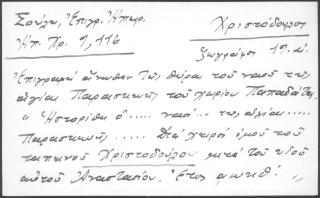 Σούλη, Ἐπιγρ. Ἠπειρ. Χριστόδουλος
Ἠπ. Χρ. 9, 116 ζωγράφος 19. αἰ.
Ἐπιγραφὴ ἄνωθεν τῆς θύρας τοῦ ναοῦ τῆς
ἁγίας Παρασκευῆς τοῦ χωρίου Παπαδάτες
« Ἱστορίθη ὁ ..... ναὸς .. τῆς ἁγίας .....
Παρασκευῆς ..... Διὰ χειρὸς ἐμοῦ τοῦ
ταπινοῦ Χριστοδούλου μετὰ τοῦ υἱοῦ
αὐτοῦ Ἀναστασίου. Ἔτος αωκθ΄. »